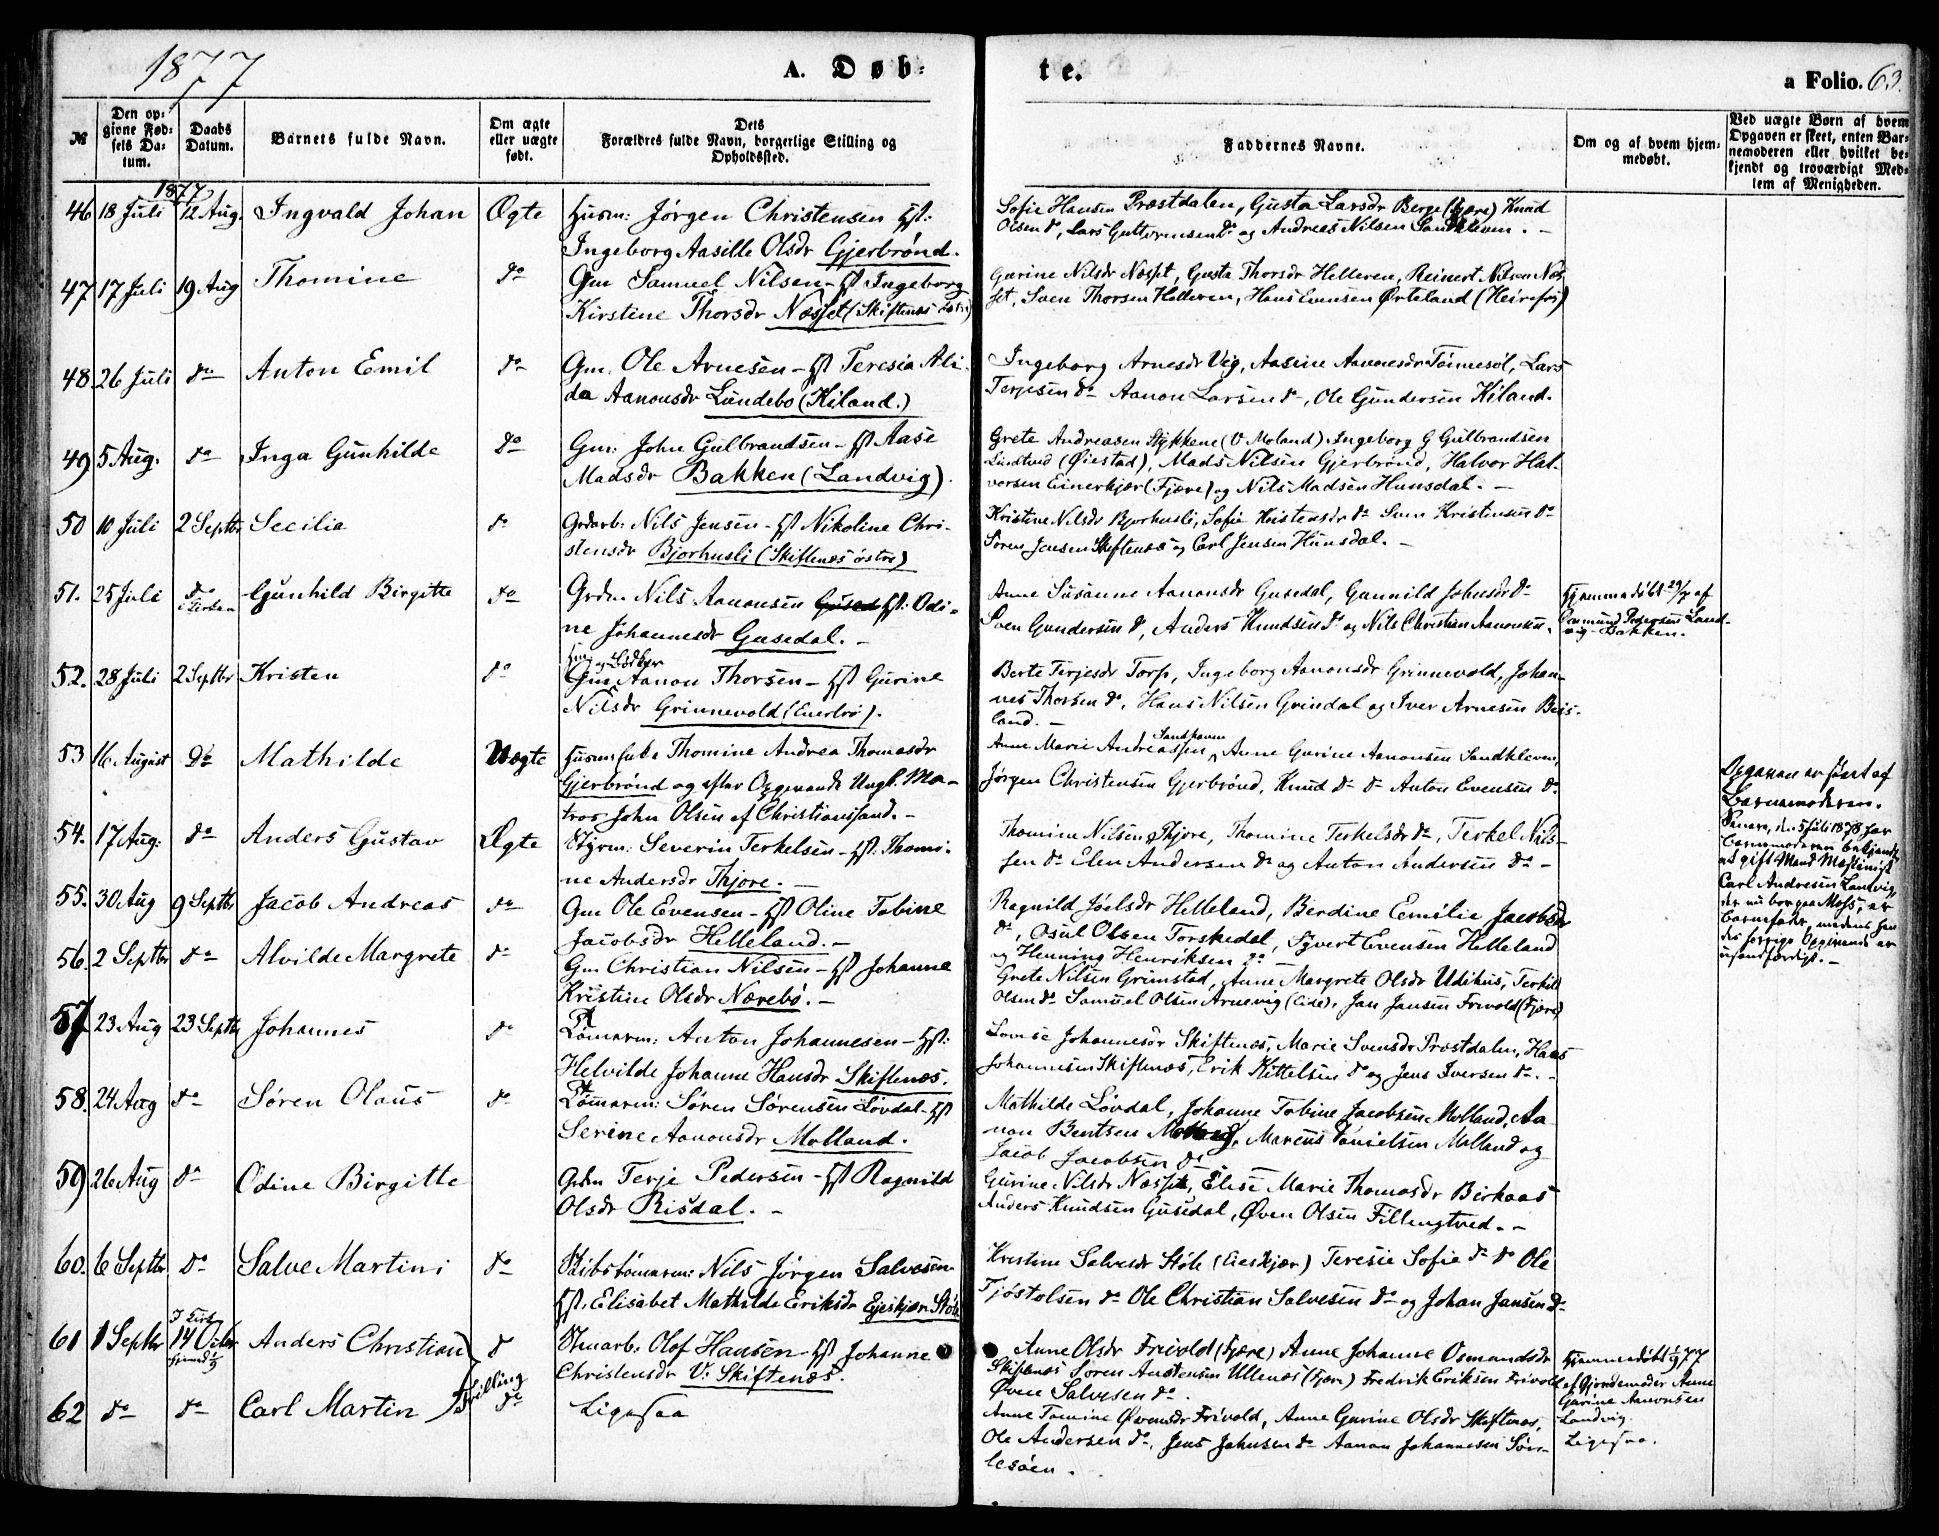 1877
A. Døb-
te.
a Folio. 63.
№
Den op-
givne Fød-
sels Da-
tum.
Daabs
Datum.
Barnets fulde Navn.
Om ægte
eller uægte
født.
Dets
Forældres fulde Navn, borgerlige Stilling og
Opholdssted.
Faddernes Navne.
Om og af hvem hjem-
medøbt.
Ved uægte Børn af hvem
Opgaven er skeet, enten Bar-
nemoderen eller hvilket be-
kjendt og troværdigt Med-
lem af Menigheden.
1877
46 18 Juli 12 Aug. Ingvald Johan Ægte Husm: Jørgen Christensen Hst:
Ingeborg Aasille Olsdr Gjerbrønd.
Sofie Hansen Præstdalen, Gusta Larsdr Berge (Fjære) Knud
Olsen do, Lars Guttormsen do og Andreas Nilsen Sandkleven. -
47 17 Juli 19 Aug Thomine do Gm Samuel Nilsen - Hst Ingeborg
Kirstene Thorsdr Næsset (Skiftenæs østre)
Gurine Nilsdr Næsset, Gusta Thorsdr Helleren, Reinert Nilsen Næs-
set, Sven Thorsen Helleren, Hans Evensen Ørteland (Heirefos)
48 26 Juli do Anton Emil do Gm. Ole Arnesen - Hst Teresia Ali-
da Aanonsdr Lundebo (Kiland.)
Ingeborg Arnesdr Vig, Aasine Aanonsdr Tønnesøl, Lars
Terjesen do Aanon Larsen do, Ole Gundersen Kiland.
49 5 Aug. do Inga Gunhilde do Gm: John Gulbrandsen - Hst Aase
Madsdr Bakken (Landvig).
Grete Andreasen Stykkene (V. Moland), Ingeborg G Gulbrandsen
Lindtved (Øiestad), Mads Nilsen Gjerbrønd, Halvor Hal-
vorsen Einerkjær (Fjære) og Nils Madsen Hunsdal. -
50 10 Juli 2 Septbr Secilia do Grdarb: Nils Jensen - Hst Nikoline Chri-
stensdr Bjorhusli (Skiftenæs østre)
Kristine Nilsdr Bjorhusli, Sofie Kristensdr do Sven Kristensen do
Søren Jensen Skiftenæs og Carl Jensen Hunsdal. -
51. 25 Juli do
i Kirken Gunhild Birgitte do Grdm Nils Aanonsen Hst: Odi-
ne Johannesdr Gusedal. -
Anne Susanne Aanonsdr Gusedal, Gunnild Johnsdr do
Sven Gundersen do, Anders Knudsen do og Nils Christian Aanonsen.
Hjemmedøbt 29/7 af
Osmund Pedersen Land-
vig-Bakken.
52. 28 Juli 2 Septbr Kristen do Hm og Bødker
Gm Aanon Thorsen - Hst Gurine
Nilsdr Grinnevold (Enerbrø).
Berte Terjesdr Torp, Ingeborg Aanonsdr Grinnevold, Johan-
nes Thorsen do, Hans Nilsen Grindal og Iver Arnesen Beis-
land. -
53 16 August Do Mathilde Uægte Husmfuke Thomine Andrea Thomasdr
Gjerbrønd og efter Opgivende Ungk. Ma-
tros John Olsen af Christianssand. -
Anne Marie Andreassen Sandhaven, Anne Gurine Aanonsen Sandkleven,
Jørgen Christensen Gjerbrønd, Knud do do Anton Evensen do.
Opgaven er skeet af
Barnemoderen.
Senere, den 5 Juli 1878 har
barnemoderen bekjendt
at gift Mand Maskinist
Carl Andresen Landvig
der nu bor paa Moss, er
barnefader, medens hen-
des forrige Opgivende er
usandfærdigt. -
54. 17 Aug. do Anders Gustav Ægte Styrm: Severin Terkelsen - Hst. Thomi-
ne Andersdr Thjore. -
Thomine Nilsen Thjore, Thomine Terkelsdr do, Terkel Nils-
sen do Elen Andersen do og Anton Andersen do -
55. 30 Aug 9 Septbr Jacob Andreas do Gm Ole Evensen - Hst Oline Tobine
Jacobsdr Helleland. -
Ragnild Joelsdr Helleland, Berdine Emilie Jacobsdr
do, Osul Olsen Torskedal, Syvert Evensen Helleland
og Henning Henriksen do -
56. 2 Septbr do Alvilde Margrete do Gm Christian Nilsen - Hst Johanne
Kristine Olsdr Nærebø. -
Grete Nilsen Grimstad, Anne Margrete Olsdr Udihus, Terkild
Olsen do Samuel Olsen Arnevig (Eide), Jan Jansen Frivold (Fjære)
57 23 Aug 23 Septbr Johannes do Tømarm: Anton Johannesen - Hst:
Helvilde Johanne Hansdr Skiftenæs.
Lovise Johannesdr Skiftenæs, Marie Svensdr Præstdalen, Hans
Johannesen Skiftenæs, Erik Kittelsen do og Jens Iversen do. -
58. 24 Aug do Søren Olaus do Tømarm: Søren Sørensen Løvdal - Hst
Serine Aanonsdr Molland.
Mathilde Løvdal, Johanne Tobine Jacobsen Molland, Aa-
non Bentsen Molland, Marcus Danielsen Molland og
Jacob Jacobsen do
59 26 Aug do Odine Birgitte Grdm Terje Pedersen - Hst Ragnild
Olsdr Risdal. -
Gurine Nilsdr Næsset, Elise Marie Thomasdr Birkaas
Anders Knudsen Gusedal, Øven Olsen Fillingtved. -
60. 6 Septbr do Salve Martini do Skibstømarm: Nils Jørgen Salvesen
Hst. Elisabet Mathilde Eriksdr Ejeskjær Støle
Kristine Salvesdr Støle (Eieskjær) Teresie Sofie do do Ole
Tjøstolsen do Ole Christian Salvesen do og Johan Jansen do
61 1 Septbr I Kirk
14 Octbr
Anders Christian do Stuarb: Olof Hansen - Hst Johanne
Christensdr V: Skiftenæs.
Anne Olsdr Frivold (Fjære) Anne Johanne Osmundsdr
Skiftenæs Søren Anstensen Ullenæs (Fjære) Fredrik Eriksen Frivold
Øven Salvesen do.
Hjemmedøbt 1/9 77
af Gjordemoder Anne
Gurine Aanonsen
Landvig.
Tvilling
62 do do Carl Martin do Ligesaa
Anne Tomine Øvensdr Frivold, Anne Gurine Olsdr Skiftenæs,
Ole Andersen do, Jens Johnsen do Aanon Johannesen Sør-
lesøen.
Ligesaa.